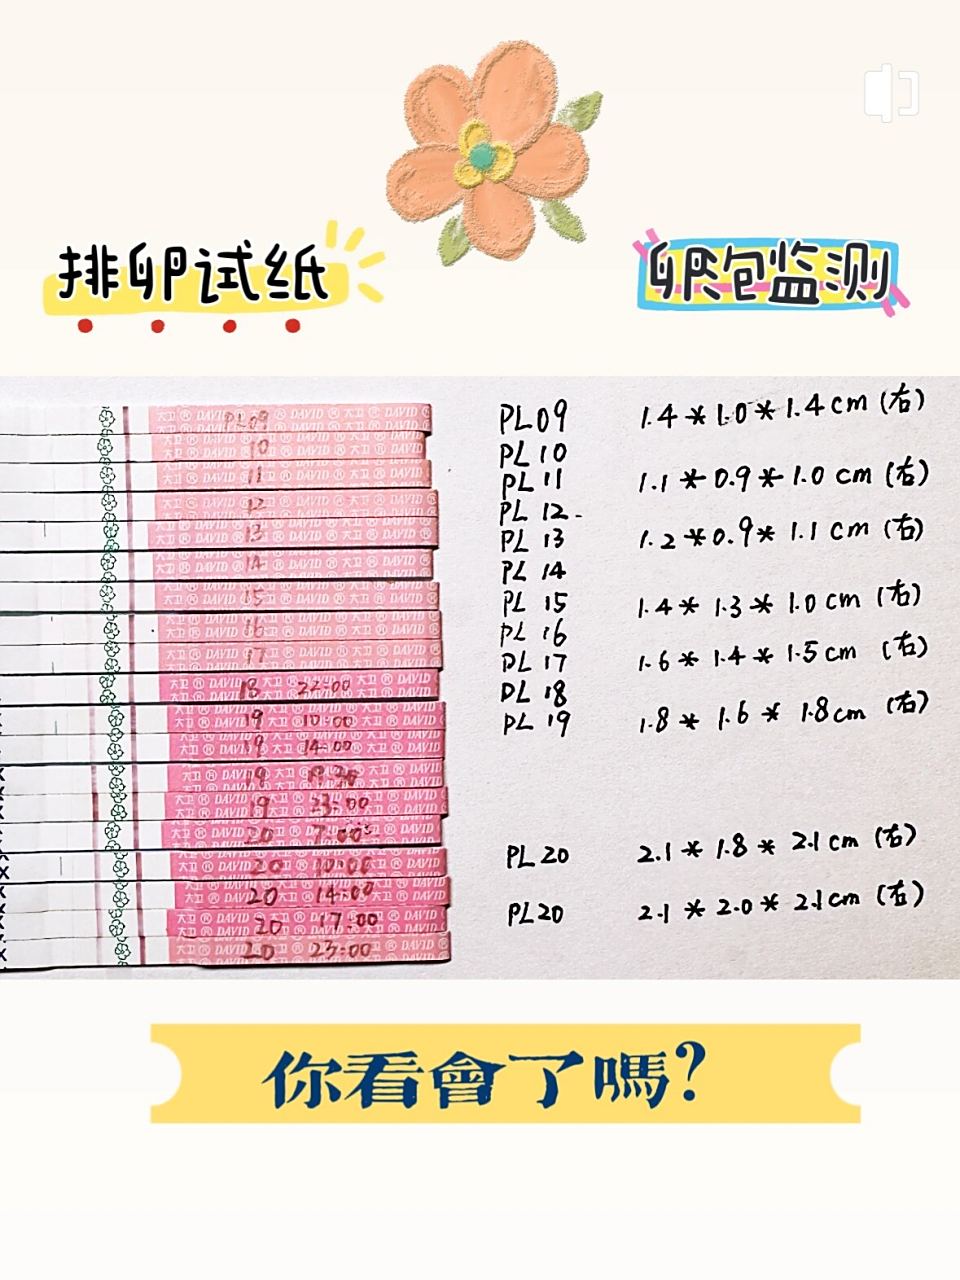 排卵试纸
卵泡监测
大卫 ® DAVID
PL09
10
11
12
13
14
15
16
17
18 22:00
19 10:00
19 14:00
19
19 23:00
20 7:00
20
20 14:00
20 17:00
20 23:00
PL09 1.4*1.0*1.4cm (右)
PL10
PL11 1.1*0.9*1.0cm (右)
PL12
PL13 1.2*0.9*1.1cm (右)
PL14
PL15 1.4*1.3*1.0cm (右)
PL16
PL17 1.6*1.4*1.5cm (右)
PL18
PL19 1.8*1.6*1.8cm (右)
PL20 2.1*1.8*2.1cm (右)
PL20 2.1*2.0*2.1cm (右)
你看會了嗎?